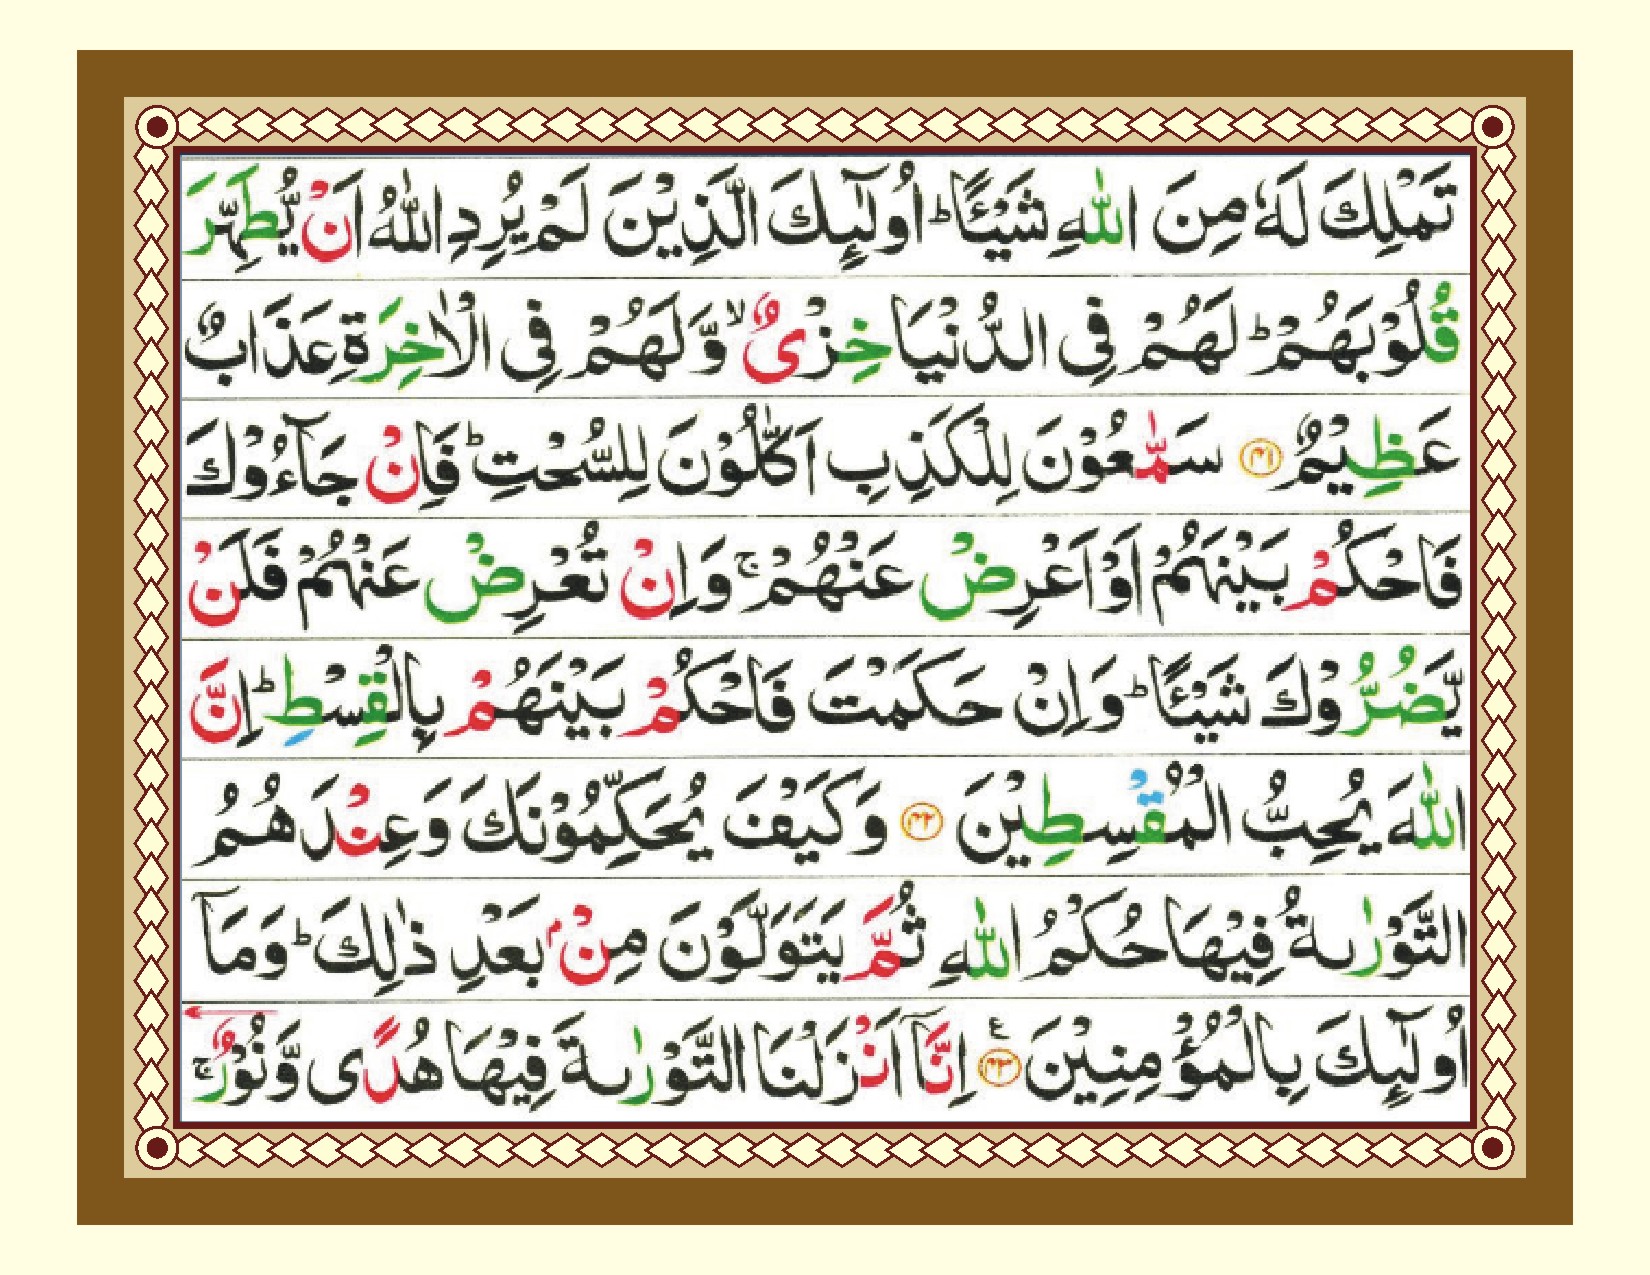 تَمْلِكَ لَهٗ مِنَ اللّٰهِ شَيْـًٔا ؕ اُولٰٓئِكَ الَّذِيْنَ لَمْ يُرِدِ اللّٰهُ اَنْ يُّطَهِّرَ
قُلُوْبَهُمْ ؕ لَهُمْ فِى الدُّنْيَا خِزْىٌ ۙ وَّلَهُمْ فِى الْاٰخِرَةِ عَذَابٌ
عَظِيْمٌ ﴿۴۱﴾ سَمّٰعُوْنَ لِلْكَذِبِ اَكّٰلُوْنَ لِلسُّحْتِ ؕ فَاِنْ جَآءُوْكَ
فَاحْكُمْ بَيْنَهُمْ اَوْ اَعْرِضْ عَنْهُمْ ۚ وَاِنْ تُعْرِضْ عَنْهُمْ فَلَنْ
يَّضُرُّوْكَ شَيْـًٔا ؕ وَاِنْ حَكَمْتَ فَاحْكُمْ بَيْنَهُمْ بِالْقِسْطِ ؕ اِنَّ
اللّٰهَ يُحِبُّ الْمُقْسِطِيْنَ ﴿۴۲﴾ وَكَيْفَ يُحَكِّمُوْنَكَ وَعِنْدَهُمُ
التَّوْرٰىةُ فِيْهَا حُكْمُ اللّٰهِ ثُمَّ يَتَوَلَّوْنَ مِنْۢ بَعْدِ ذٰلِكَ ؕ وَمَاۤ
اُولٰٓئِكَ بِالْمُؤْمِنِيْنَ ﴿۴۳﴾ ع اِنَّاۤ اَنْزَلْنَا التَّوْرٰىةَ فِيْهَا هُدًى وَّنُوْرٌ ۚ